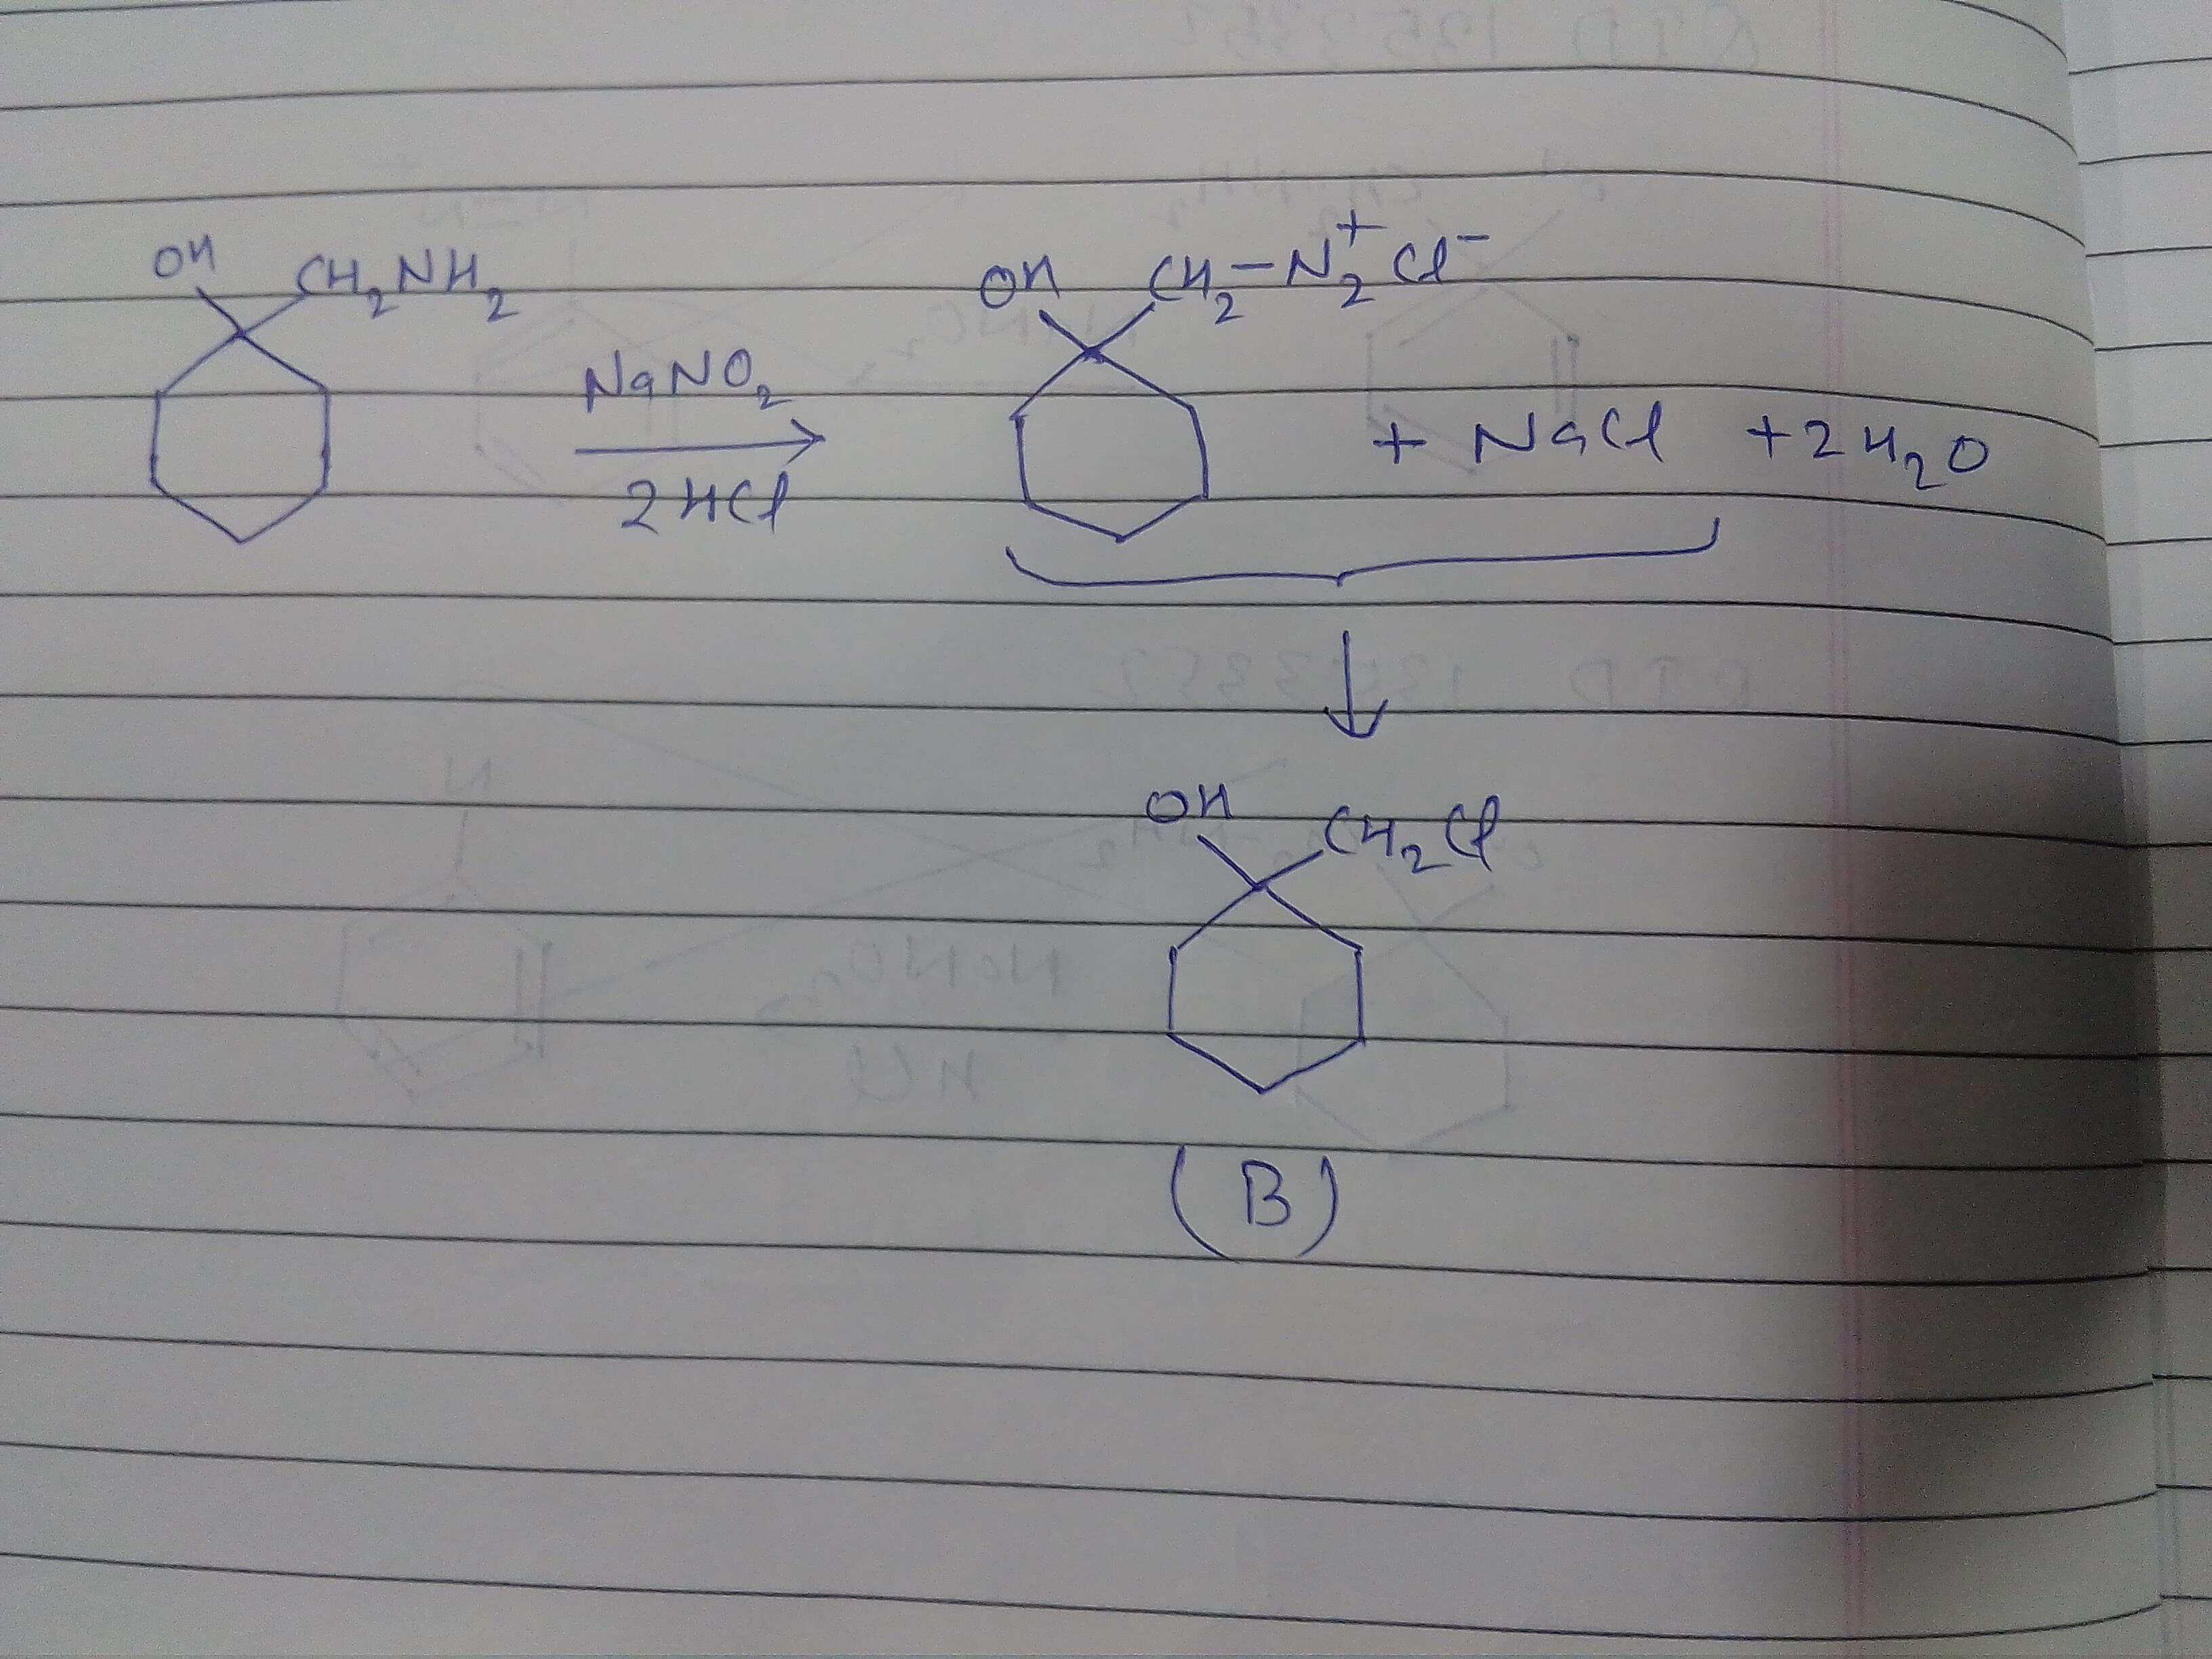 OH CH₂NH₂ NaNO₂ 2HCl OH CH₂-N₂⁺Cl⁻ + NaCl + 2H₂O
OH CH₂Cl
(B)